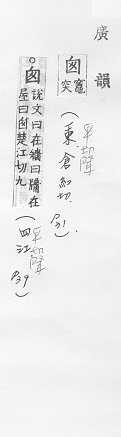 廣韻
囪 竈突
(東 倉紅切.
平聲
P31).
囪 說文曰在牆曰牖在
屋曰囪楚江切九
(四江
平聲
P39)